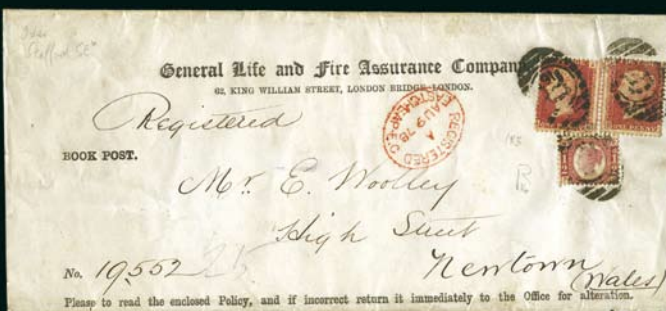 General Life and Fire Assurance Company
62, KING WILLIAM STREET, LONDON BRIDGE, LONDON.
Registered
REGISTERED
A
AU 9 78
EASTCHEAP E.C
BOOK POST.
Mr. E. Woolley
High Street
Newtown (Wales)
No. 19,552
Please to read the enclosed Policy, and if incorrect return it immediately to the Office for alteration.
ONE PENNY